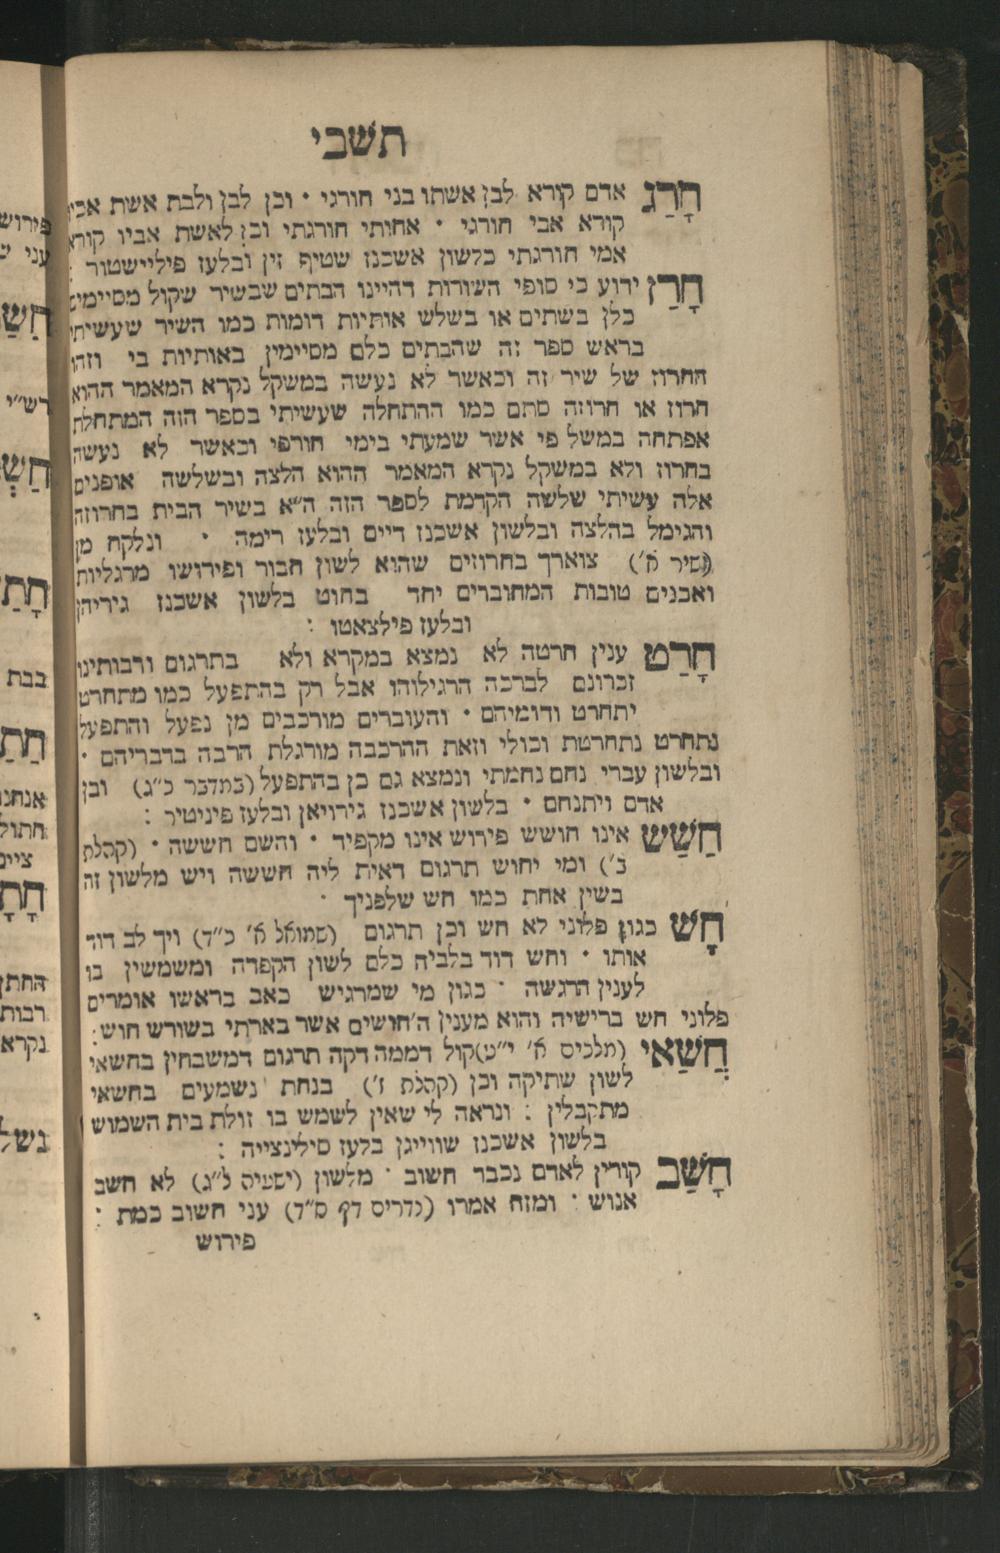 תשבי
חָרַג אדם קורא לבן אשתו בני חורגי · וכן לבן ולבת אשת אביו
קורא אבי חורגי · אחותי חורגתי וכן לאשת אביו קורא
אמי חורגתי בלשון אשכנז שטיף זין ובלעז פילייישטור :
חָרַז ידוע כי סופי השורות דהיינו הבתים שבשיר שקול מסיימים
כלן בשתים או בשלש אותיות דומות כמו השיר שעשיתי
בראש ספר זה שהבתים כלם מסיימין באותיות בי וזהו
החרוז של שיר זה וכאשר לא נעשה במשקל נקרא המאמר ההוא
חרוז או חרוזה סתם כמו ההתחלה שעשיתי בספר הזה המתחלת
אפתחה במשל פי אשר שמעתי בימי חורפי וכאשר לא נעשה
בחרוז ולא במשקל נקרא המאמר ההוא הלצה ובשלשה אופנים
אלה עשיתי שלשה הקדמת לספר הזה ה״א בשיר הבית בחרוזה
והגימל בהלצה ובלשון אשכנז דיים ובלעז רימה · ונלקח מן
(שיר א׳) צוארך בחרוזים שהוא לשון חבור ופירושו מרגליות
ואבנים טובות המחוברים יחד בחוט בלשון אשכנז גיריהן
ובלעז פילצאטו :
חָרַט ענין חרטה לא נמצא במקרא ולא בתרגום ורבותינו
זכרונם לברכה הרגילוהו אבל רק בהתפעל כמו מתחרט
יתחרט ודומיהם · והעוברים מורכבים מן נפעל והתפעל
נתחרט נתחרטת וכולי וזאת ההרכבה מורגלת הרבה בדבריהם ·
ובלשון עברי נחם נחמתי ונמצא גם כן בהתפעל (במדבר כ״ג) ובן
אדם ויתנחם · בלשון אשכנז גירויאן ובלעז פיניטיר :
חַשַּׁשׁ אינו חושש פירוש אינו מקפיד · והשם חששה · (קהלת
ב׳) ומי יחוש תרגום דאית ליה חששה ויש מלשון זה
בשין אחת כמו חש שלפניך ·
חָשׁ כגון פלוני לא חש וכן תרגום (שמואל א׳ כ״ד) ויך לב דוד
אותו · וחש דוד בלביה כלם לשון הקפדה ומשמשין בו
לענין הרגשה · כגון מי שמרגיש כאב בראשו אומרים
פלוני חש ברישיה והוא מענין ה׳חושים אשר בארתי בשורש חוש :
חֲשַׁאי (מלכים א׳ י״ט) קול דממה דקה תרגום דמשבחין בחשאי
לשון שתיקה וכן (קהלת ז׳) בנחת נשמעים בחשאי
מתקבלין : ונראה לי שאין לשמש בו זולת בית השמוש
בלשון אשכנז שווייגן בלעז סילינצייה :
חָשַׁב קורין לאדם נכבד חשוב · מלשון (ישעיה ל״ג) לא חשב
אנוש · ומזה אמרו (נדרים דף ס״ד) עני חשוב כמת :
פירוש
פירוש
עני
רש״י
בבת
אנחנו
חתול
ציים
החתן
רבות
נקרא